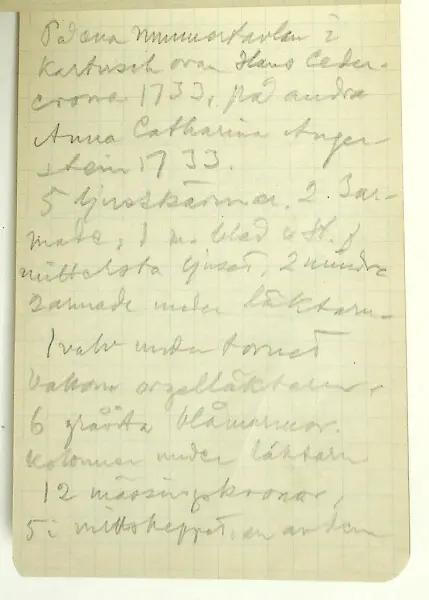 På ena nummertavlan i
kartusch ovan Hans Ceder-
crona 1733, på andra
Anna Catharina Anger-
stein 1733.
5 ljuskronor, 2 3ar-
made, 1 m. blad o
mittersta ljuset, 2 mindre
2armade under läktaren.
1 valv under tornet
bakom orgelläktaren.
6 gråvita blåmarmor.
kolonner under läktare
12 mässingskronor,
5 i mittskeppet, en av dem